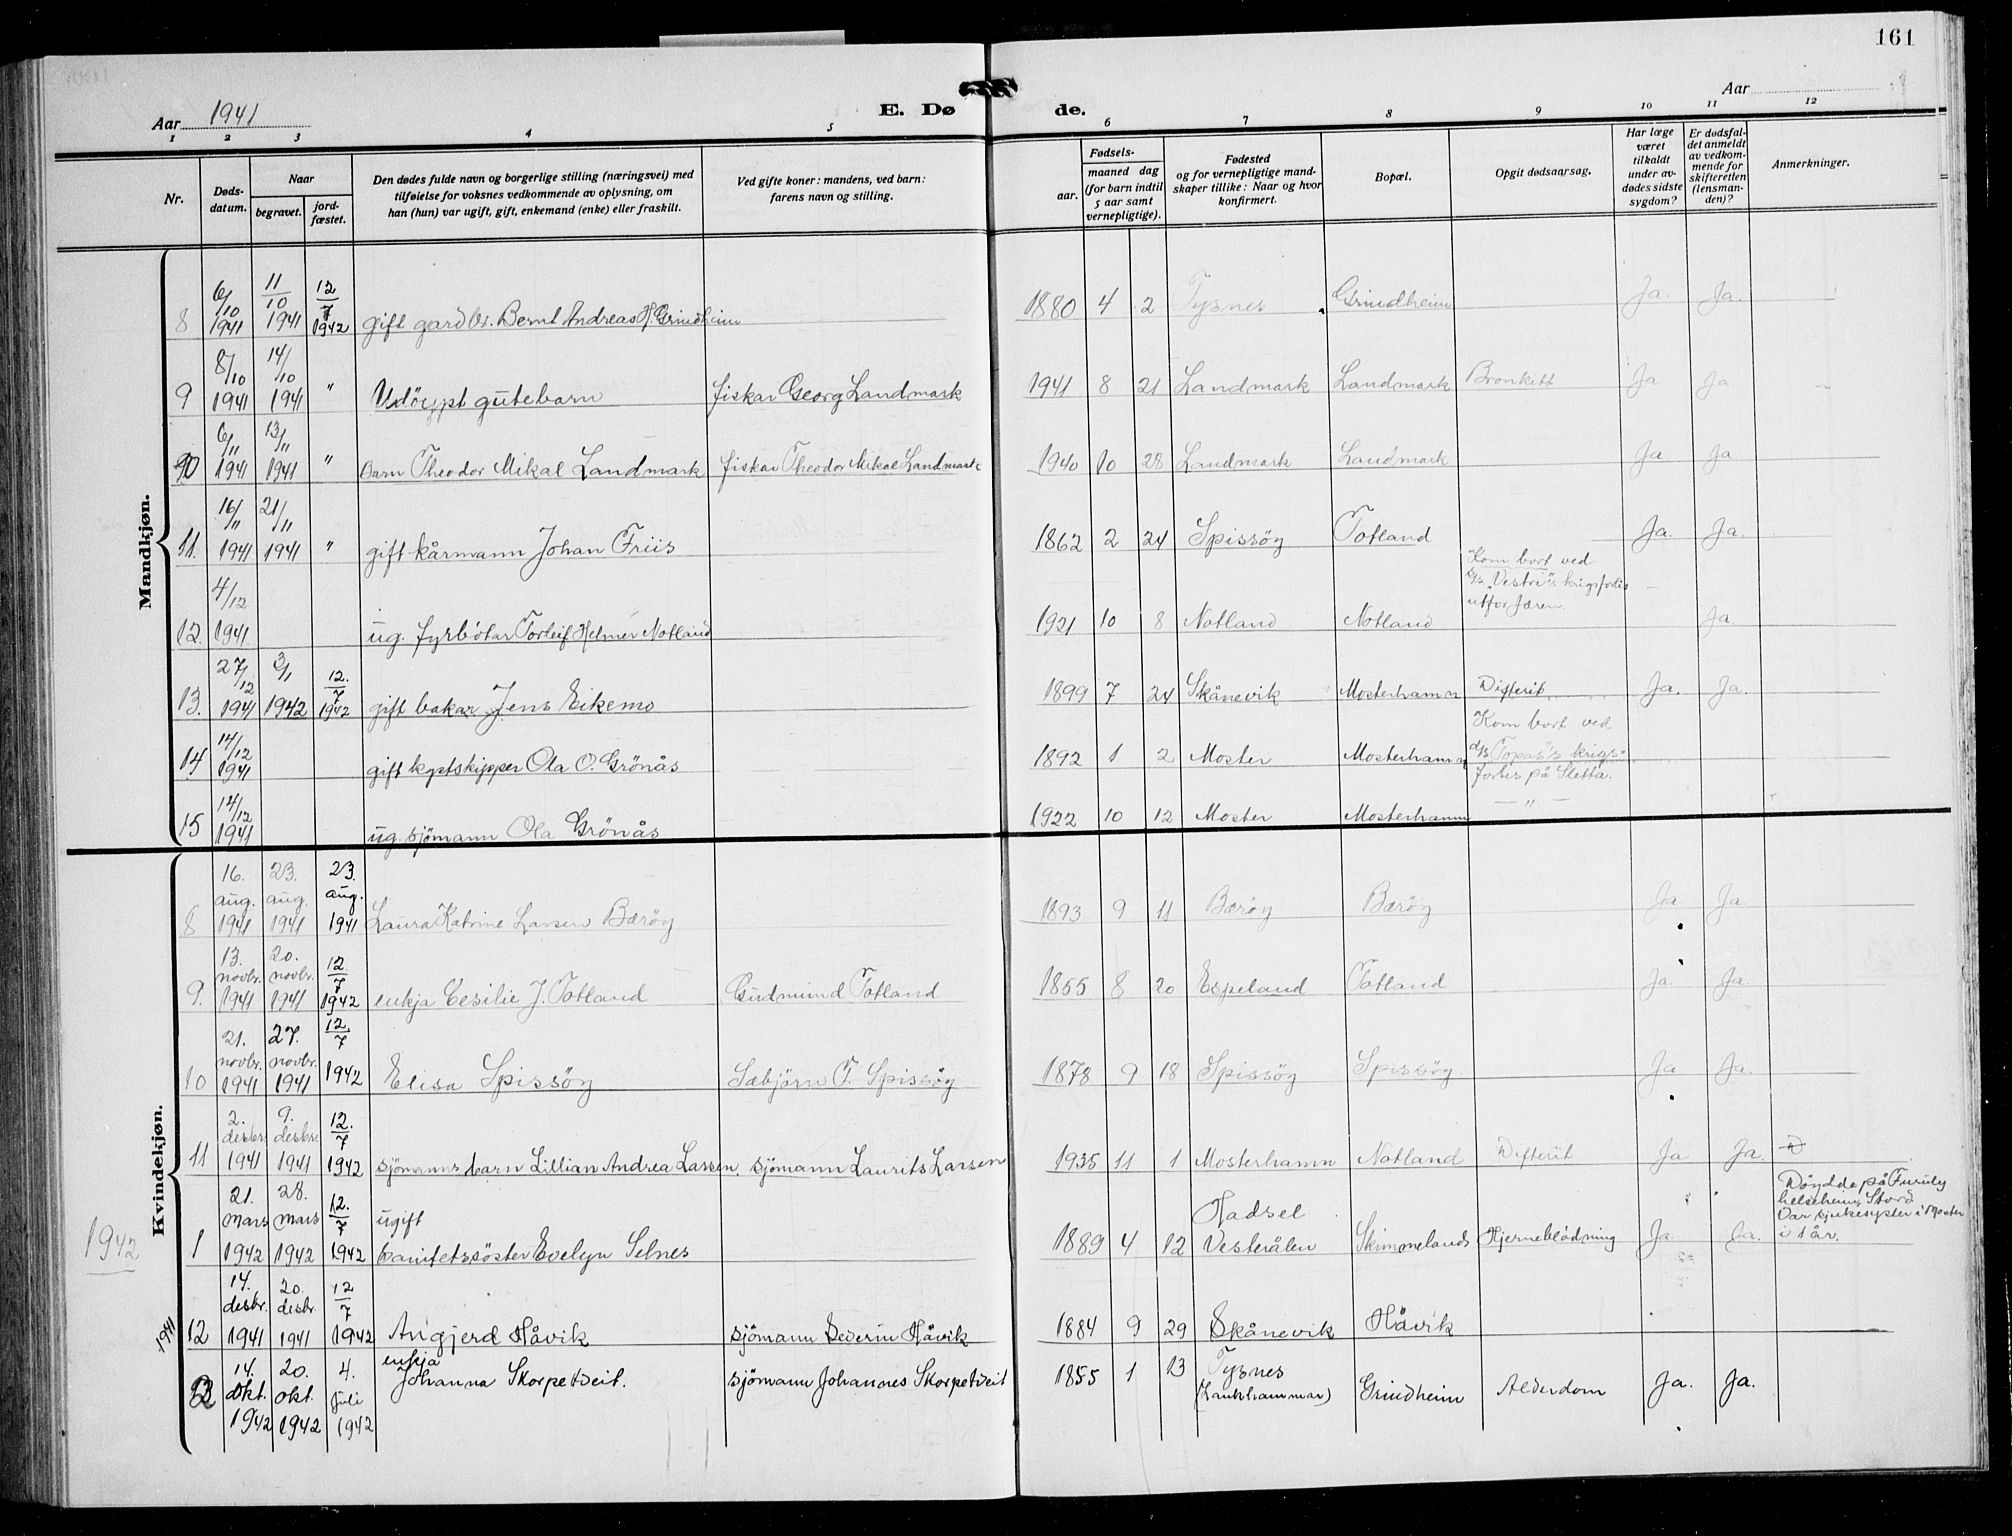 161
Aar 1941
E. Døde.
Aar
1 2 3 4 5 6 7 8 9 10 11 12
Nr.
Døds-datum.
Naar
begravet.
jord-fæstet.
Den dødes fulde navn og borgerlige stilling (næringsvei) med
tilføielse for voksnes vedkommende av oplysning, om
han (hun) var ugift, gift, enkemand (enke) eller fraskilt.
Ved gifte koner: mandens, ved barn:
farens navn og stilling.
Fødsels-
aar.
maaned dag
(for barn indtil
5 aar samt
vernepligtige).
Fødested
og for vernepligtige mand-
skaper tillike: Naar og hvor
konfirmert.
Bopæl.
Opgit dødsaarsag.
Har læge
været
tilkaldt
under av-
dødes sidste
sygdom?
Er dødsfal-
det anmeldt
av vedkom-
mende for
skifteretten
(lensman-
den)?
Anmerkninger.
Mandkjøn.
8 6/10 1941 11/10 1941 12/7 1942 gift gardbr. Bernt Andreas H. Grindheim 1880 4 2 Tysnes Grindheim Ja. Ja.
9 8/10 1941 14/10 1941 " Udöypt gutebarn fiskar Georg Landmark 1941 8 21 Landmark Landmark Bronkitt Ja Ja
10 6/11 1941 13/11 1941 " barn Theodor Mikal Landmark fiskar Theodor Mikal Landmark 1940 10 28 Landmark Landmark Ja Ja
11. 16/11 1941 21/11 1941 " gift kårmann Johan Friis 1862 2 24 Spissöy Totland Ja. Ja.
12. 4/12 1941 ug. fyrbötar Torleif Helmer Notland 1921 10 8 Notland Notland Kom bort ved
d/s "Vestri"s krigsforlis
utfor Jæren. Ja.
13. 27/12 1941 3/1 1942 12./7 1942 gift bakar Jens Eikemo 1899 7 24 Skånevik Mosterhamn Difterit Ja. Ja.
14 14/12 1941 gift kystskipper Ola O. Grönås 1892 1 2 Moster Mosterhamn Kom bort ved
d/s "Topas"s krigs-
forlis på Sletta.
15 14/12 1941 ug. sjömann Ola Grönås 1922 10 12 Moster Mosterhamn — " —
Kvindekjøn.
8 16. aug. 1941 23. aug. 1941 23. aug. 1941 Laura Katrine Larsen Bæröy 1893 9 11 Bæröy Bæröy Ja Ja
9. 13. novbr. 1941 20. novbr. 1941 12/7 1942 enkja Cesilie J. Totland Gudmund Totland 1855 8 20 Espeland Totland Ja Ja.
10 21. novbr. 1941 27. novbr. 1941 12/7 1942 Elisa Spissöy Sæbjörn T. Spissöy 1878 9 18 Spissöy Spissöy Ja Ja.
11 2. desbr. 1941 9. desbr. 1941 12./7 1942 sjömanns barn Lillian Andrea Larsen. sjömann Laurits Larsen 1935 11 1 Mosterhamn Notland Difterit Ja Ja.
1942
1 21. mars 1942 28. mars 1942 12./7 1942 ugift
sanitetssöster Evelyn Selnes 1889 4 12 Hadsel
Vesterålen Skimmeland Hjerneblödning Ja. Ja. Döydde på Furuly
helseheim, Stord
Var sjukesyster i Moster
i 1 år.
1941
12 14. desbr. 1941 20. desbr. 1941 12/7 1942 Angjerd Håvik sjömann Severin Håvik 1884 9 29 Skånevik Håvik
2 14. okt. 1942 20. okt. 1942 4. juli 1942 enkja
Johanna Skorpetveit. sjömann Johannes Skorpetveit 1855 1 13 Tysnes
(Lunkhammar) Grindheim Alderdom Ja. Ja.